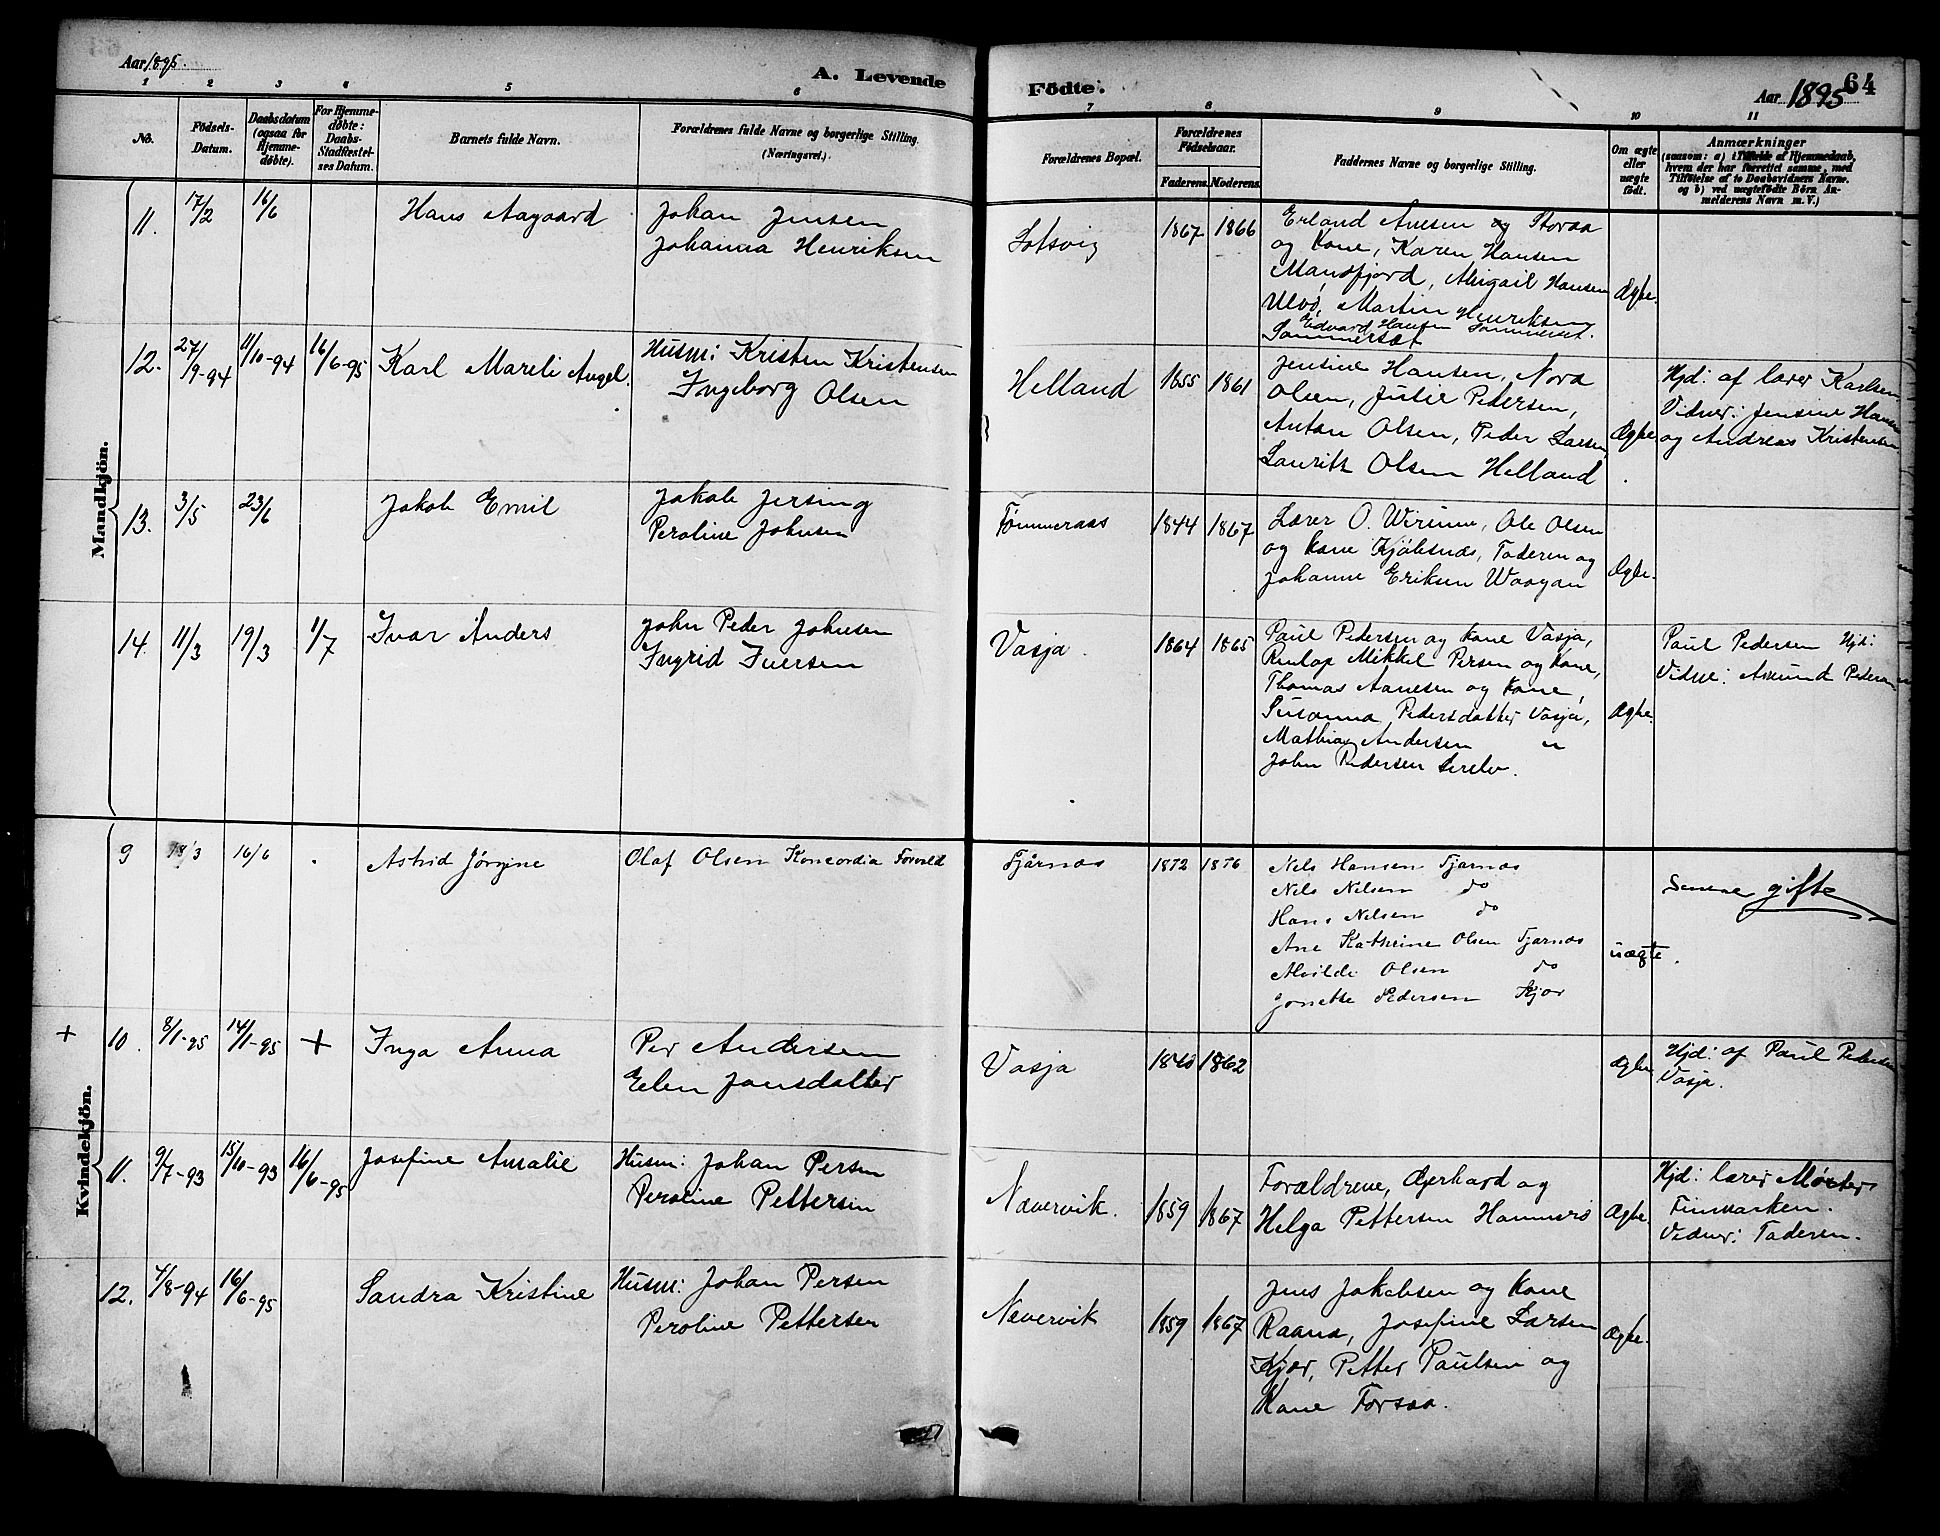 Aar 1895.
A. Levende
Födte.
64
Aar 1895
1 2 3 4 5 6 7 8 9 10 11
No.
Födsels-
Datum.
Daabsdatum
(ogsaa for
Hjemme-
døbte).
For Hjemme-
døbte:
Daabs-
Stadfæstel-
ses Datum.
Barnets fulde Navn.
Forældrenes fulde Navne og borgerlige Stilling.
(Næringsvei.)
Forældrenes Bopæl.
Forældrenes
Födselsaar.
Faderens. Moderens.
Faddernes Navne og borgerlige Stilling.
Om ægte
eller
uægte
født.
Anmærkninger
(saasom: a) i Tilfælde af Hjemmedaab,
hvem der har forrettet samme, med
Tilføielse af to Daabsvidners Navne.
og b) ved uægtefödte Börn An-
melderens Navn m. V.)
Mandkjön.
11. 17/2 16/6 Hans Aagaard
Johan Jensen
Johanna Henriksen
1867 1866
Erland Anesen og Storaa
og Kone, Karen Hansen
Mansfjord, Abigail Hansen
Ulvø, Martin Henriksen
Edvard Hansen Sommerset.
Sommersæt
Ægte.
12. 27/9-94 11/10-94 16/6-95 Karl Mareli Angel.
Husm: Kristen Kristensen
Ingeborg Olsen
Helland 1855 1861
Jensine Hansen, Nora
Olsen, Julie Pedersen,
Anton Olsen, Peder Larsen
Lauritz Olsen Helland
Ægte
Hjd: af lærer Karlsen
Vidner: Jensine Hansen
og Andreas Kristensen
13. 3/5 23/6 Jakob Emil
Jakob Jersing
Peroline Johnsen
Tømmeraas 1844 1867
Lærer O. Ole Olsen
og kone Kjøbsnæs, Faderen og
Johanne Eriksen
Ægte.
14. 11/3 19/3 1/7 Ivar Anders
John Peder Johnsen
Ingrid Iversen
Vasja. 1864 1865
Paul Pedersen og kone Vasja,
Mikkel Persen og Kone,
Thomas Aanesen og Kone,
Susanna Pedersdatter Vasja,
Mathias Andersen "
John Pedersen
Ægte.
Paul Pedersen Hjd:
Vidne: Amund Pedersen
Kvindekjön.
9 18/3 16/6 . Astrid Jörgine
Olaf Olsen Koncordia
Tjårnæs 1872 1876
Nels Hansen Tjarnæs
Nels Nelsen do
Hans Nelsen do
Ane Kathrine Olsen Tjarnæs
Alvilde Olsen do
Jonette Pedersen Kjær
uægte.
Senere gifte
+ 10. 8/1-95 14/1-95 + Inga Anna
Per Andersen
Elen Jonsdatter
Vasja 1862
Ægte
Hjd: af Paul Pedersen
Vasja.
11. 9/7-93 15/10-93 16/6-95 Josefine Amalie
Husm: Johan Persen
Peroline Pettersen
Nævervik. 1859 1867
Forældrene, Gjerhard og
Helga Pettersen
Ægte
Hjd: lærer
Finmarken.
Vidner: Faderen.
12. 7/8-94 16/6-95 Sandra Kristine
Husm: Johan Persen
Peroline Pettersen
Nævervik 1859 1867
Jens Jakobsen og kone
Raana, Josefine Larsen
Kjær, Petter Paulsen og
Kone Forsaa.
Ægte.